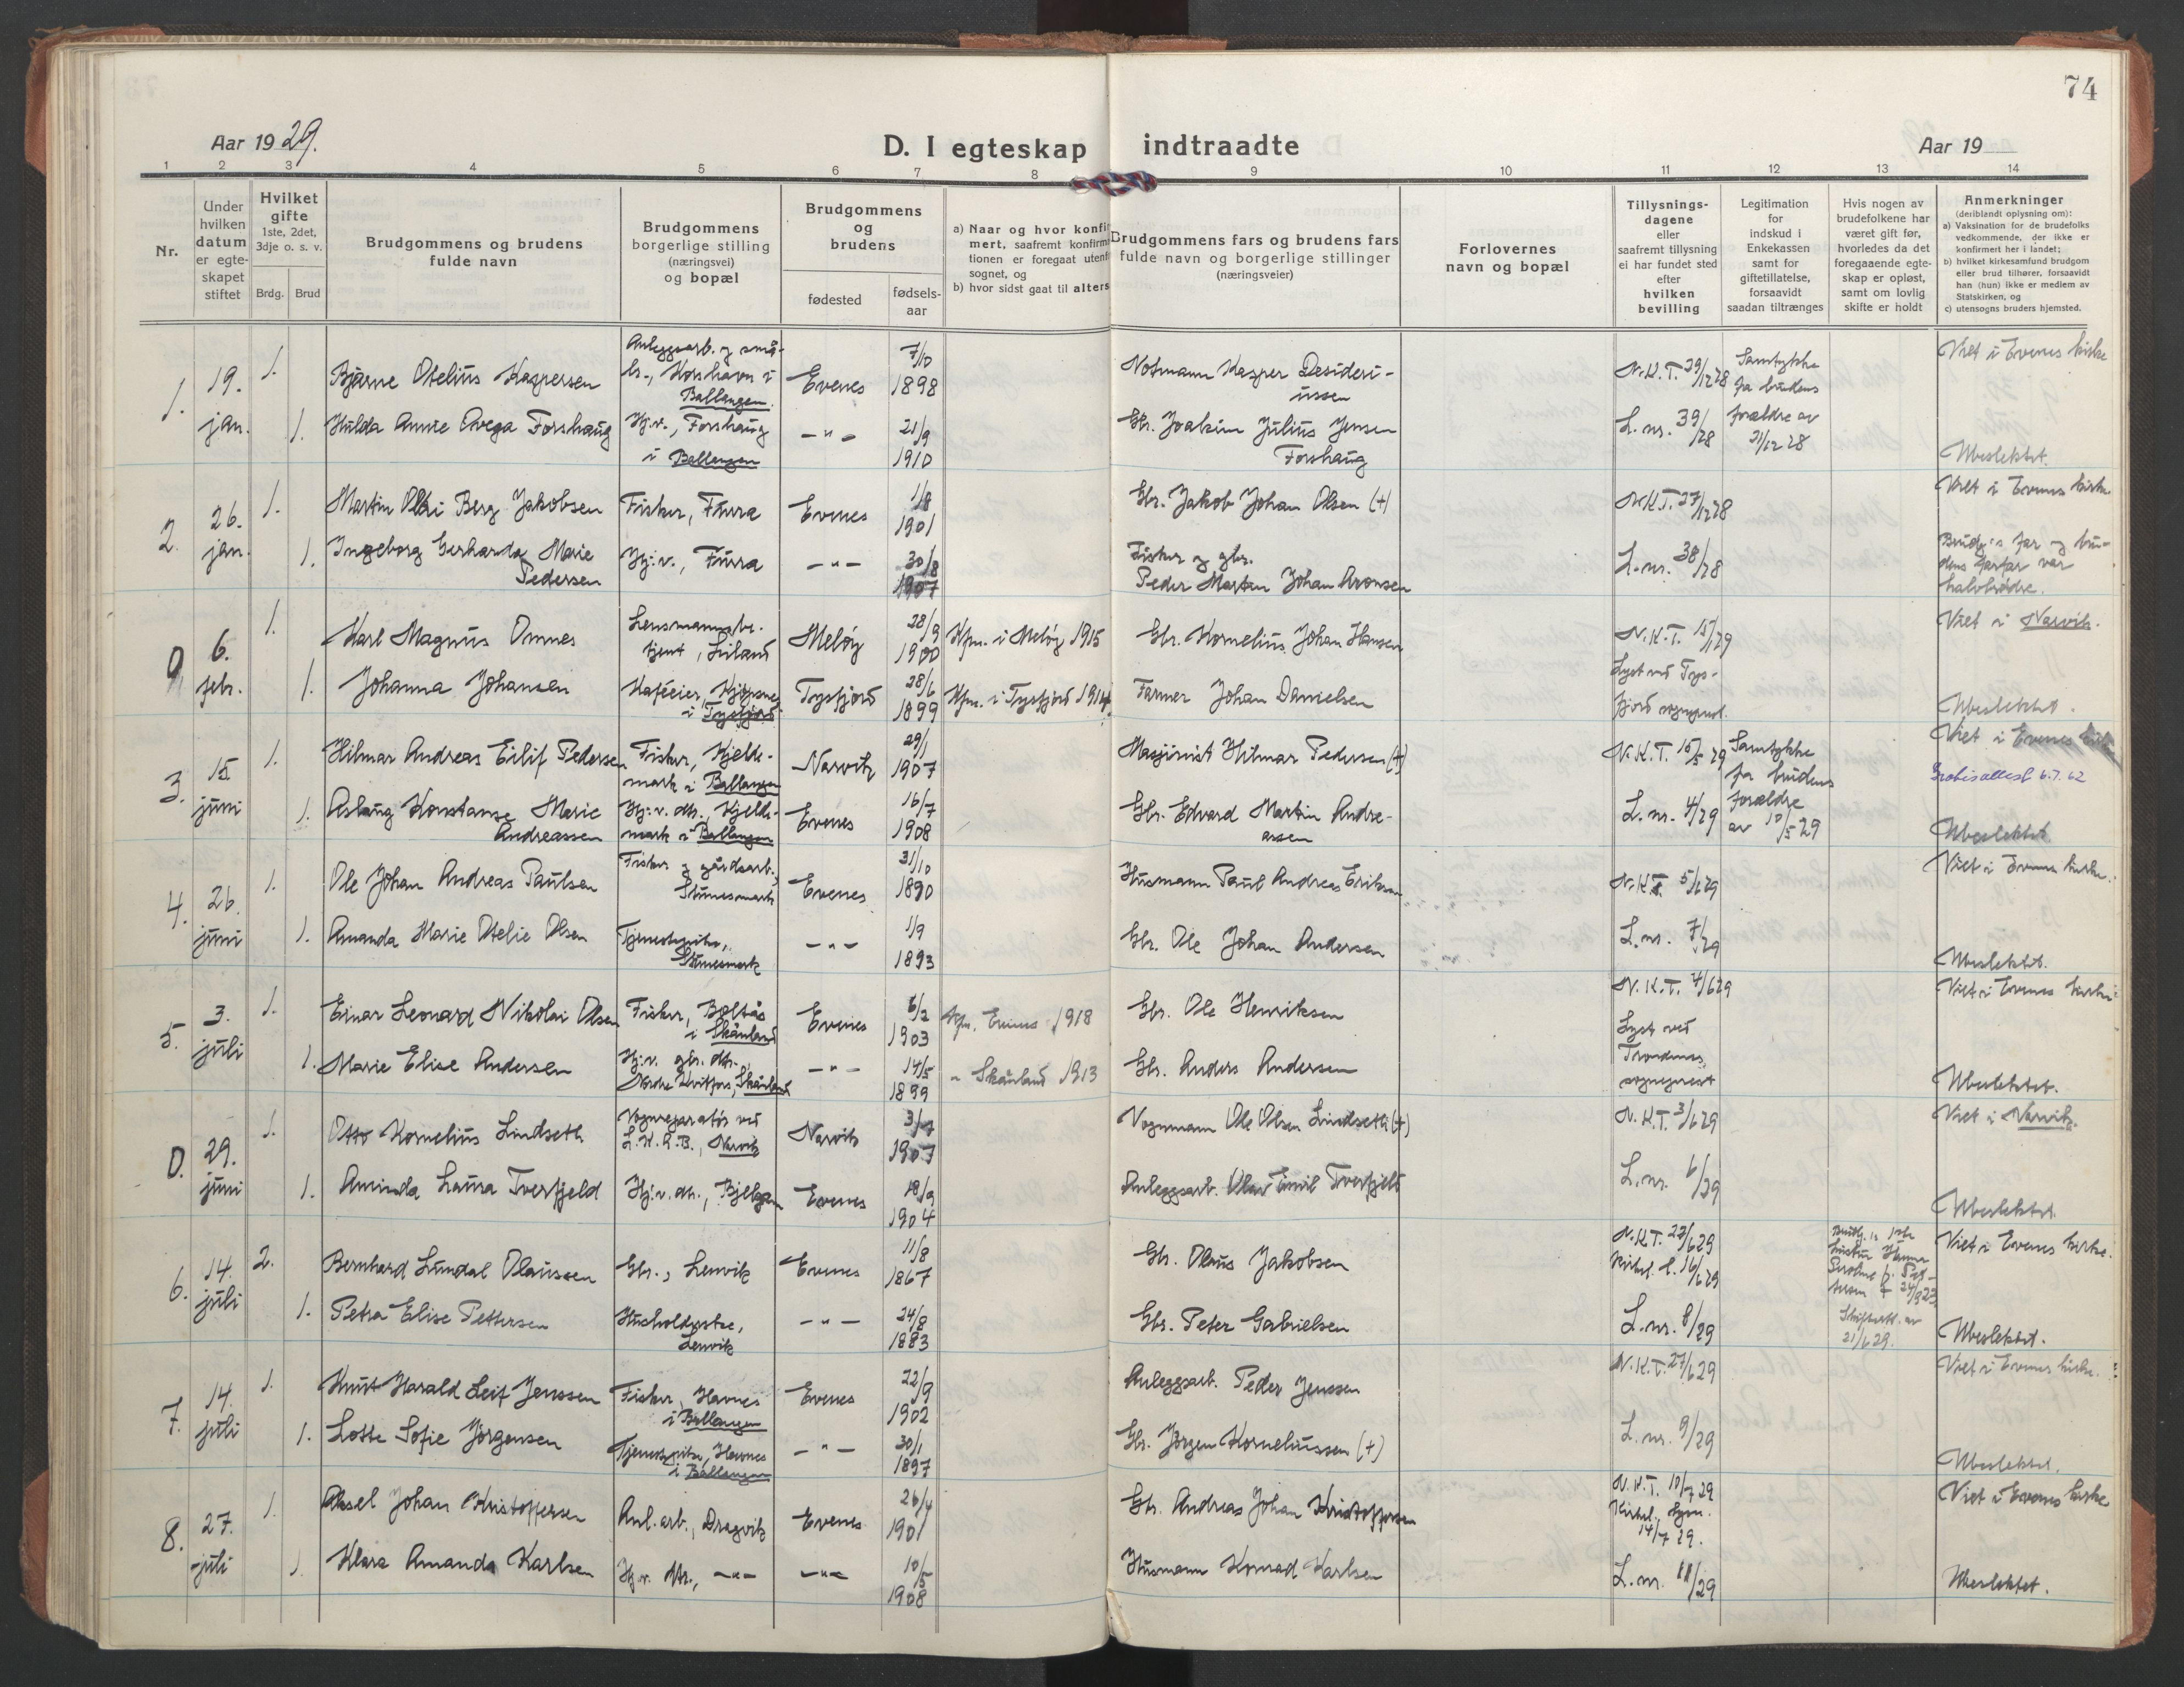 74
Aar 1929.
D. I egteskap indtraadte
Aar 19
1 2 3 4 5 6 7 8 9 10 11 12 13 14
Nr.
Under
hvilken
datum
er egte-
skapet
stiftet
Hvilket
gifte
1ste, 2det,
3dje o. s. v.
Brdg.
Brud
Brudgommens og brudens
fulde navn
Brudgommens
borgerlige stilling
(næringsvei)
og bopæl
Brudgommens
og
brudens
fødested
fødsels-
aar
a) Naar og hvor konfir
mert, saafremt konfirm
tionen er foregaat utenf
sognet, og
b) hvor sidst gaat til alters
Brudgommens fars og brudens fars
fulde navn og borgerlige stillinger
(næringsveier)
Forlovernes
navn og bopæl
Tillysnings-
dagene
eller
saafremt tillysning
ei har fundet sted
efter
hvilken
bevilling
Legitimation
for
indskud i
Enkekassen
samt for
giftetillatelse,
forsaavidt
saadan tiltrænges
Hvis nogen av
brudefolkene har
været gift før,
hvorledes da det
foregaaende egte-
skap er opløst,
samt om lovlig
skifte er holdt
Anmerkninger
(deriblandt oplysning om):
a) Vaksination for de brudefolks
vedkommende, der ikke er
konfirmert her i landet;
b) hvilket kirkesamfund brudgom
eller brud tilhører, forsaavidt
han (hun) ikke er medlem av
Statskirken, og
c) utensogns bruders hjemsted.
1.
19.
jan.
1.
Bjarne Otelius Kaspersen
Anleggsarb. og små-
br., Korshavn i
Ballangen.
Evenes
7/10
1898
Notmann Kasper Desideri-
ussen
N.K.T. 29/12 28
Samtykke
fra brudens
Viet i Evenes kirke
1.
Hulda Annie Forshaug
Hj.v., Forshaug
i Ballangen
-"-
21/9
1910
Gbr. Joakim Julius Jensen
Forshaug
L. nr. 39/28
forældre av
21/12 28
Ubeslektet.
2.
26.
jan.
1.
Martin Berg Jakobsen
Fisker, Furra
Evenes
1/8
1901
Gbr. Jakob Johan Olsen (+)
N.K.T. 27/12 28
Viet i Evenes kirke
1.
Ingeborg Gerharda Marie
Pedersen
Hj.v., Furra
-"-
30/8
1907
Fisker og gbr.
Peder Martin Johan Aronsen
L. nr. 38/28
Brudg.s far og bru-
dens farfar var
halvbrødre.
0
6.
febr.
1.
Karl Magnus Omnes
Lensmannsbe-
tjent, Liland
Meløy
28/9
1900
Kfm. i Meløy 1915
Gbr. Kornelius Johan Hansen
N.K.T. 15/1 29
Viet i Narvik.
1.
Johanna Johansen
Kaféeier, Kjøpsnes
i Tysfjord
Tysfjord
28/6
1899
Kfm. i Tysfjord 1914
Farmer Johan Danielsen
Lyst ved Tys-
fjord sogneprest.
Ubeslektet.
3.
15.
juni
1.
Hilmar Andreas Eilif Pedersen
Fisker, Kjelde-
mark i Ballangen
Narvik
29/1
1907
Masjinist Hilmar Pedersen (+)
N.K.T. 15/5 29
Samtykke
fra brudens
Viet i Evenes kirke
6.7.62
1.
Aslaug Konstanse Marie
Andreassen
Hj.v. dtr., Kjelde-
mark i Ballangen
Evenes
16/7
1908
Gbr. Edvard Martin Andre-
assen
L. nr. 4/29
forældre
av 10/5 29
Ubeslektet
4.
26.
juni
1.
Ole Johan Andreas Paulsen
Fisker og gårdsarb.,
Stunesmark
Evenes
31/10
1890
Husmann Paul Andreas Eriksen
N.K.T. 5/6 29
Viet i Evenes kirke.
1.
Amanda Marie Otelie Olsen
Tjenestepike,
Stunesmark
-"-
1/9
1893
Gbr. Ole Johan Andersen
L. nr. 7/29
Ubeslektet.
5.
3.
juli
1.
Einar Leonard Nikolai Olsen
Fisker, Boltås
i Skånland
Evenes
6/2
1903
Kfm. Evenes 1918
Gbr. Ole Henriksen
N.K.T. 4/6 29
Viet i Evenes kirke
1.
Marie Elise Andersen
Hj.v. gbr. dtr.
Nordre Kvitfors, Skånland
-"-
14/5
1899
" Skånland 1913
Gbr. Anders Andersen
Lyst ved
Trondenes
sogneprest
Ubeslektet.
0.
29.
juni
1.
Otto Kornelius Lindseth
Vognreparatør ved
L.K.A.B., Narvik
Narvik
3/7
1907
Vognmann Ole Olsen Lindseth (+)
N.K.T. 3/6 29
Viet i Narvik.
1.
Aminda Laura Tverfjeld
Hj.v. dtr., Bjelgam
Evenes
18/9
1904
Anleggsarb. Olav Emil Tverfjeld
L. nr. 6/29
Ubeslektet.
6.
14.
juli
2.
Bernhard Lundal Olaussen
Gbr., Lenvik
Evenes
11/8
1867
Gbr. Olaus Jakobsen
N.K.T. 23/6 29
16/6 29
Brudg.s 1ste
hustru Hanna
24/3 23
Viet i Evenes kirke.
1.
Petra Elise Pettersen
Husholderske,
Lenvik
-"-
24/8
1883
Gbr. Peter Gabrielsen
L. nr. 8/29
Skifteatt. av
21/6 29.
Ubeslektet.
7.
14.
juli
1.
Knut Harald Leif Jenssen
Fisker, Havnes
i Ballangen
Evenes
22/9
1902
Anleggsarb. Peder Jenssen
N.K.T. 27/6 29
Viet i Evenes kirke.
1.
Lotte Sofie Jørgensen
Tjenestepike, Havnes
i Ballangen
-"-
30/1
1897
Gbr. Jørgen Korneliussen (+)
L. nr. 9/29
Ubeslektet.
8.
27.
juli
1.
Aksel Johan Kristoffersen
Anl.arb., Dragvik
Evenes
26/4
1901
Gbr. Andreas Johan Kristoffersen
N.K.T. 10/7 29
Kirkel. lysn.
14/7 29.
Viet i Evenes kirke
1.
Klara Amanda Karlsen
Hj.v. dtr., -"-
-"-
10/5
1908
Husmann Konrad Karlsen
L. nr. 11/29
Ubeslektet.